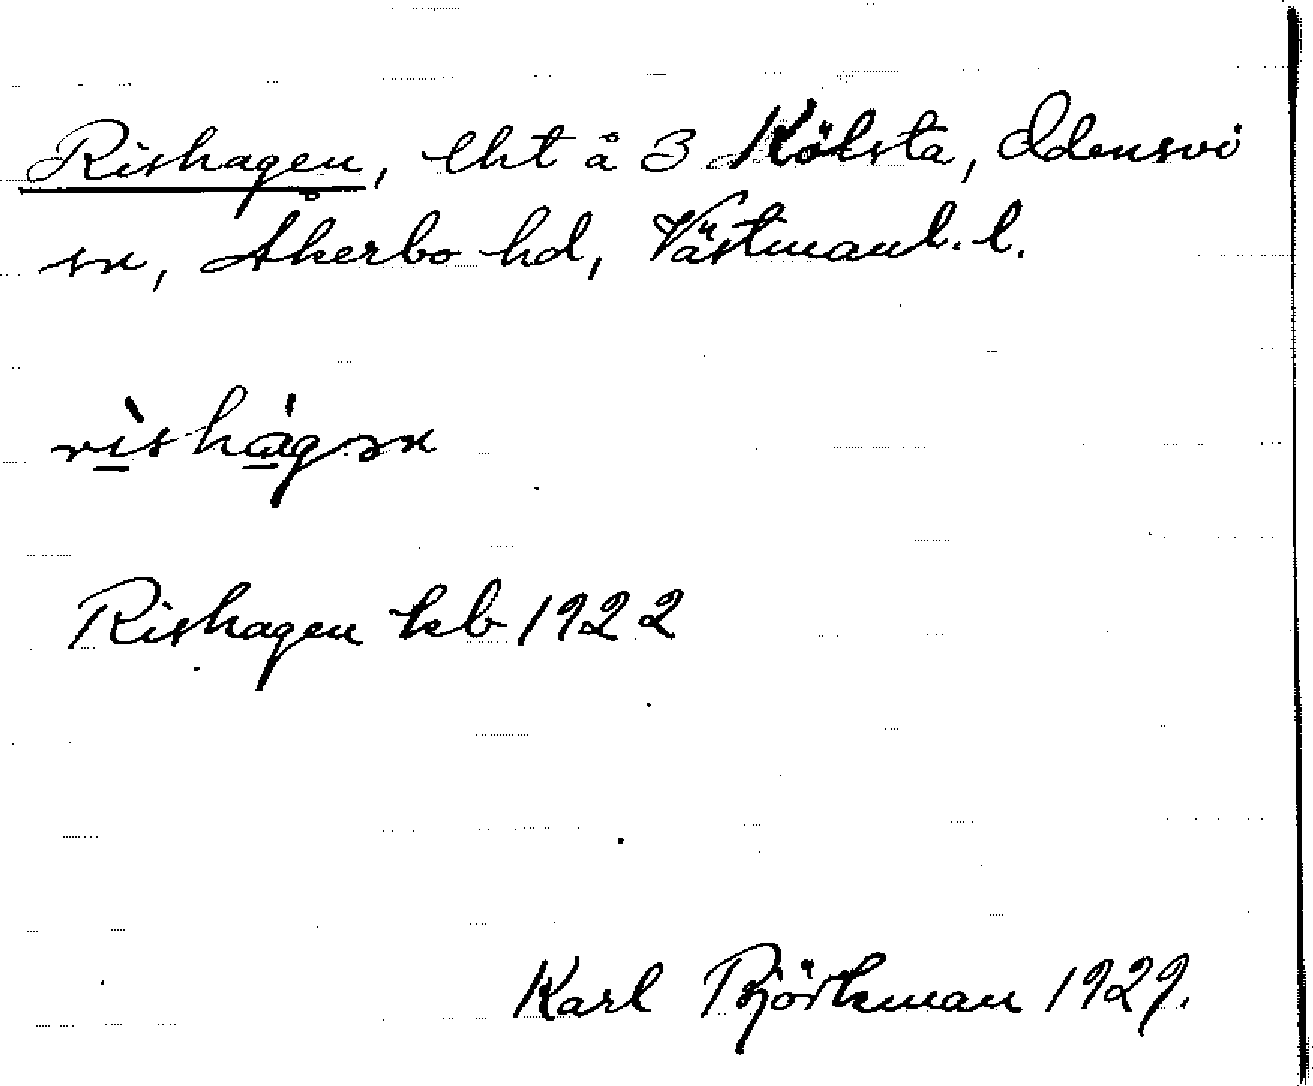 Rishagen, lht å 3 Kölsta, Odensvi
sn, Åkerbo hd, Västmanl. l.
Rishagen kb 1922
Karl Björkman 1929.